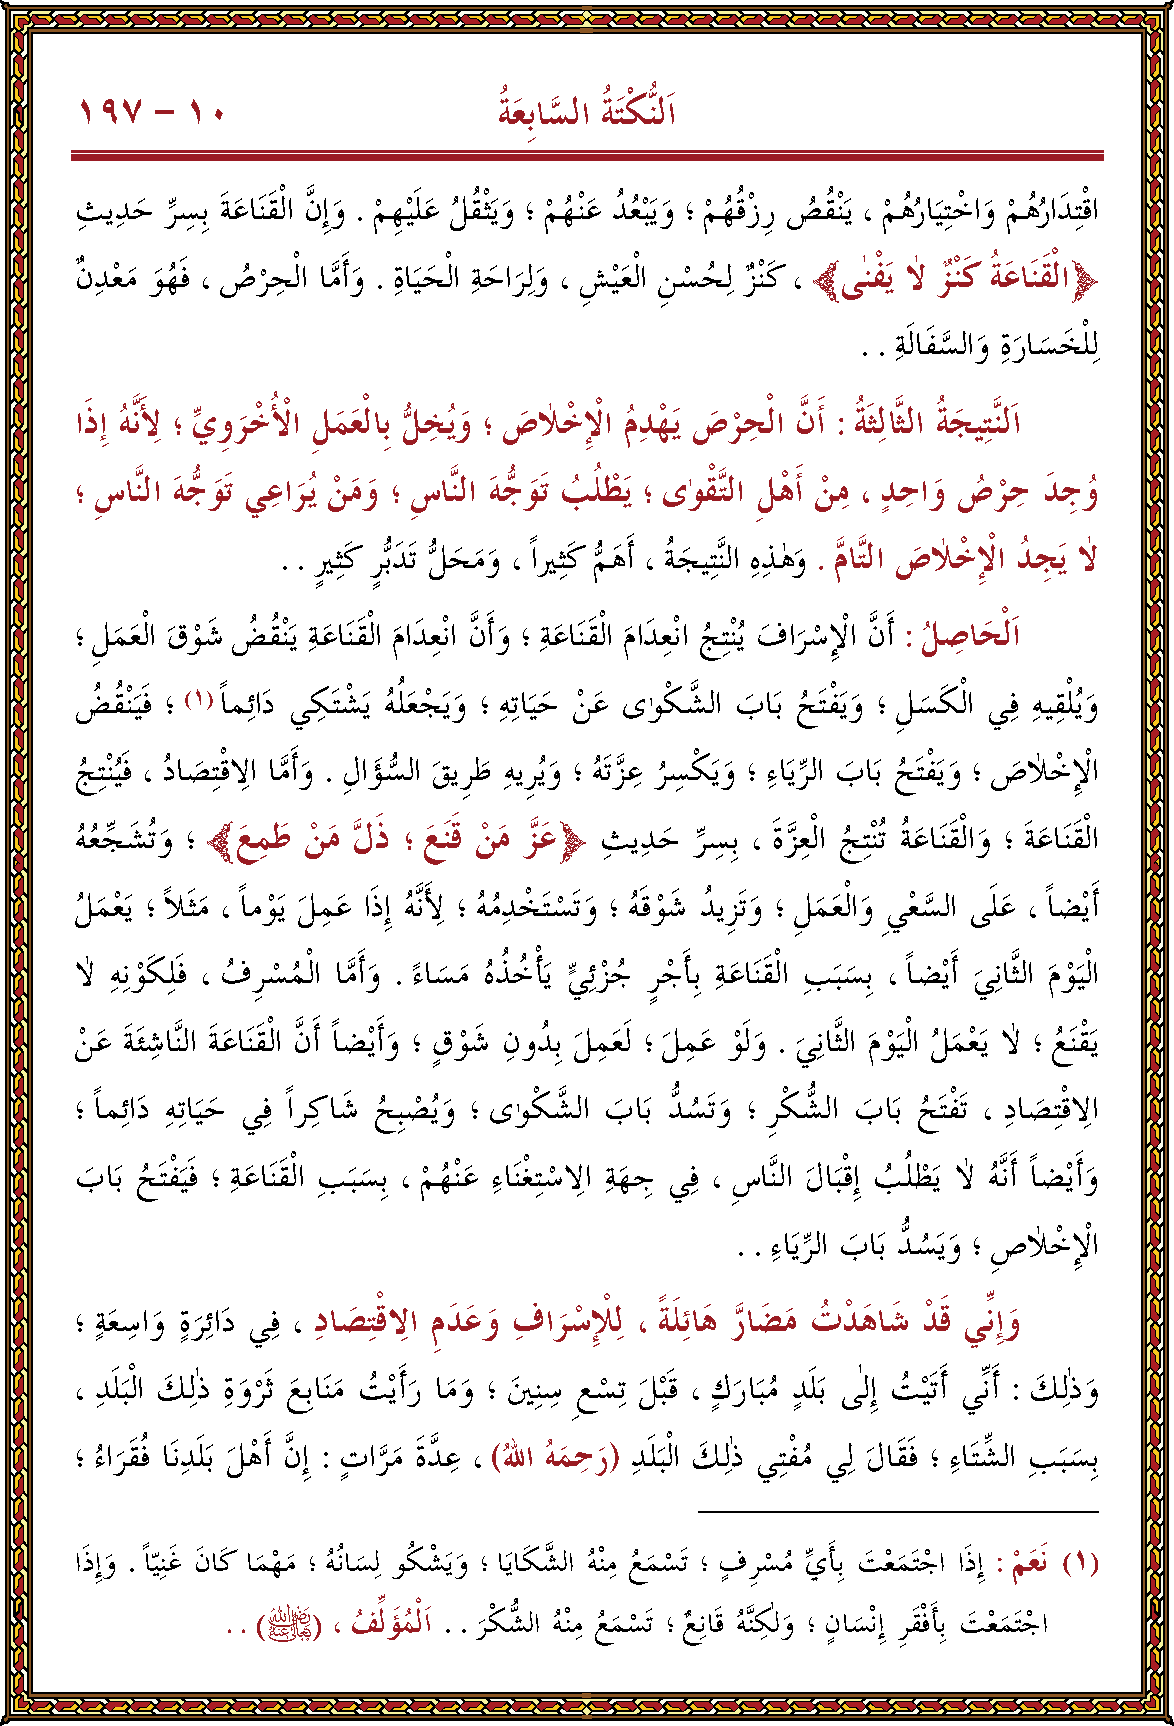 اَلنُّكْتَةُ السَّابِعَةُ ١٠ – ١٩٧
اقْتِدَارُهُمْ وَاخْتِيَارُهُمْ ، يَنْقُصُ رِزْقُهُمْ ؛ وَيَبْعُدُ عَنْهُمْ ؛ وَيَثْقُلُ عَلَيْهِمْ . وَإِنَّ الْقَنَاعَةَ بِسِرِّ حَدِيثِ
﴿الْقَنَاعَةُ كَنْزٌ لَا يَفْنٰى﴾ ، كَنْزٌ لِحُسْنِ الْعَيْشِ ، وَلِرَاحَةِ الْحَيَاةِ . وَأَمَّا الْحِرْصُ ، فَهُوَ مَعْدِنٌ
لِلْخَسَارَةِ وَالسَّفَالَةِ . .
اَلنَّتِيجَةُ الثَّالِثَةُ : أَنَّ الْحِرْصَ يَهْدِمُ الْإِخْلَاصَ ؛ وَيُخِلُّ بِالْعَمَلِ الْأُخْرَوِيِّ ؛ لِأَنَّهُ إِذَا
وُجِدَ حِرْصُ وَاحِدٍ ، مِنْ أَهْلِ التَّقْوٰى ؛ يَطْلُبُ تَوَجُّهَ النَّاسِ ؛ وَمَنْ يُرَاعِي تَوَجُّهَ النَّاسِ ؛
لَا يَجِدُ الْإِخْلَاصَ التَّامَّ . وَهٰذِهِ النَّتِيجَةُ ، أَهَمُّ كَثِيراً ، وَمَحَلُّ تَدَبُّرٍ كَثِيرٍ . .
اَلْحَاصِلُ : أَنَّ الْإِسْرَافَ يُنْتِجُ انْعِدَامَ الْقَنَاعَةِ ؛ وَأَنَّ انْعِدَامَ الْقَنَاعَةِ يَنْقُضُ شَوْقَ الْعَمَلِ ؛
وَيُلْقِيهِ فِي الْكَسَلِ ؛ وَيَفْتَحُ بَابَ الشَّكْوٰى عَنْ حَيَاتِهِ ؛ وَيَجْعَلُهُ يَشْتَكِي دَائِماً (١) ؛ فَيَنْقُضُ
الْإِخْلَاصَ ؛ وَيَفْتَحُ بَابَ الرِّيَاءِ ؛ وَيَكْسِرُ عِزَّتَهُ ؛ وَيُرِيهِ طَرِيقَ السُّؤَالِ . وَأَمَّا الِاقْتِصَادُ ، فَيُنْتِجُ
الْقَنَاعَةَ ؛ وَالْقَنَاعَةُ تُنْتِجُ الْعِزَّةَ ، بِسِرِّ حَدِيثِ ﴿عَزَّ مَنْ قَنَعَ ؛ ذَلَّ مَنْ طَمِعَ﴾ ؛ وَتُشَجِّعُهُ
أَيْضاً ، عَلَى السَّعْيِ وَالْعَمَلِ ؛ وَتَزِيدُ شَوْقَهُ ؛ وَتَسْتَخْدِمُهُ ؛ لِأَنَّهُ إِذَا عَمِلَ يَوْماً ، مَثَلاً ؛ يَعْمَلُ
الْيَوْمَ الثَّانِيَ أَيْضاً ، بِسَبَبِ الْقَنَاعَةِ بِأَجْرٍ جُزْئِيٍّ يَأْخُذُهُ مَسَاءً . وَأَمَّا الْمُسْرِفُ ، فَلِكَوْنِهِ لَا
يَقْنَعُ ؛ لَا يَعْمَلُ الْيَوْمَ الثَّانِيَ . وَلَوْ عَمِلَ ؛ لَعَمِلَ بِدُونِ شَوْقٍ ؛ وَأَيْضاً أَنَّ الْقَنَاعَةَ النَّاشِئَةَ عَنْ
الِاقْتِصَادِ ، تَفْتَحُ بَابَ الشُّكْرِ ؛ وَتَسُدُّ بَابَ الشَّكْوٰى ؛ وَيُصْبِحُ شَاكِراً فِي حَيَاتِهِ دَائِماً ؛
وَأَيْضاً أَنَّهُ لَا يَطْلُبُ إِقْبَالَ النَّاسِ ، فِي جِهَةِ الِاسْتِغْنَاءِ عَنْهُمْ ، بِسَبَبِ الْقَنَاعَةِ ؛ فَيَفْتَحُ بَابَ
الْإِخْلَاصِ ؛ وَيَسُدُّ بَابَ الرِّيَاءِ . .
وَإِنِّي قَدْ شَاهَدْتُ مَضَارَّ هَائِلَةً ، لِلْإِسْرَافِ وَعَدَمِ الِاقْتِصَادِ ، فِي دَائِرَةٍ وَاسِعَةٍ ؛
وَذٰلِكَ : أَنِّي أَتَيْتُ إِلٰى بَلَدٍ مُبَارَكٍ ، قَبْلَ تِسْعِ سِنِينَ ؛ وَمَا رَأَيْتُ مَنَابِعَ ثَرْوَةِ ذٰلِكَ الْبَلَدِ ،
بِسَبَبِ الشِّتَاءِ ؛ فَقَالَ لِي مُفْتِي ذٰلِكَ الْبَلَدِ (رَحِمَهُ اللّٰهُ) ، عِدَّةَ مَرَّاتٍ : إِنَّ أَهْلَ بَلَدِنَا فُقَرَاءُ ؛
(١) نَعَمْ : إِذَا اجْتَمَعْتَ بِأَيِّ مُسْرِفٍ ؛ تَسْمَعُ مِنْهُ الشَّكَايَا ؛ وَيَشْكُو لِسَانُهُ ؛ مَهْمَا كَانَ غَنِيّاً . وَإِذَا
اجْتَمَعْتَ بِأَفْقَرِ إِنْسَانٍ ؛ وَلٰكِنَّهُ قَانِعٌ ؛ تَسْمَعُ مِنْهُ الشُّكْرَ . . اَلْمُؤَلِّفُ ، (رَضِيَ اللّٰهُ تَعَالٰى عَنْهُ) . .